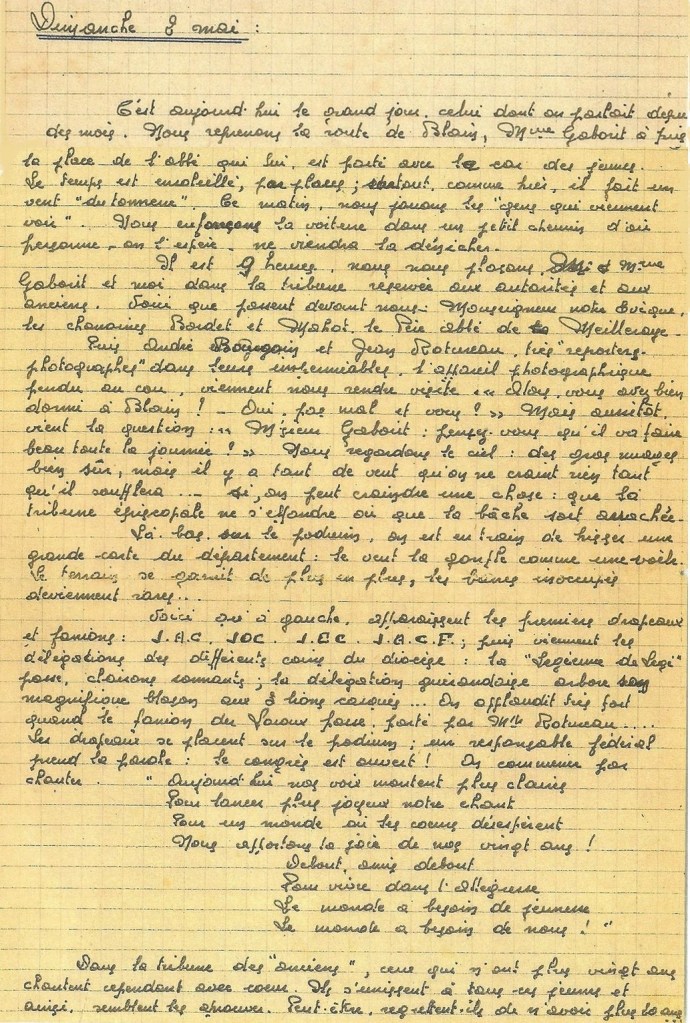 Dimanche 8 mai :
C'est aujourd'hui le grand jour, celui dont on parlait depuis
des mois. Nous reprenons la route de Blain, Mme Gaborit a pris
la place de l'abbé qui lui, est parti avec le car des jeunes.
Le temps est ensoleillé, par places ; surtout, comme hier, il fait un
vent "du tonnerre". Ce matin, nous jouons les "gens qui viennent
voir". Nous enfonçons la voiture dans un petit chemin d'où
personne - on l'espère - ne viendra la dénicher.
Il est 9 heures, nous nous plaçons, Mr et Mme
Gaborit et moi dans la tribune réservée aux autorités et aux
anciens. Voici que passent devant nous : Monseigneur notre Evêque,
les chanoines Bordet et Mahot, le Père abbé de la Meilleraye.
Puis André Bourgoin et Jean Rotureau, très "reporters-
photographes" dans leurs imperméables, l'appareil photographique
pendu au cou, viennent nous rendre visite "Alors, vous avez bien
dormi à Blain ! - Oui, pas mal et vous ?" Mais aussitôt,
vient la question : "Msieur Gaborit : pensez-vous qu'il va faire
beau toute la journée ?" Nous regardons le ciel : des gros nuages
bien sûr, mais il y a tant de vent qu'on ne craint rien tant
qu'il soufflera ... si, on peut craindre une chose : que la
tribune épiscopale ne s'effondre ou que la bâche soit arrachée.
Là-bas, sur le podium, on est en train de hisser une
grande carte du département : le vent la gonfle comme une voile.
Le terrain se garnit de plus en plus, les bancs inoccupés
deviennent rares...
Voici qu'à gauche, apparaissent les premiers drapeaux
et fanions : J.A.C, JOC, J.E.C, J.A.C.F. ; puis viennent les
délégations des différents coins du diocèse : la "Legéenne de Legé"
passe, clairons sonnants ; la délégation guérandaise arbore son
magnifique blason aux 3 lions casqués... On applaudit très fort
quand le fanion du Lavoux passe, porté par Mlle Rotureau....
Les drapeaux se placent sur le podium ; un responsable fédéral
prend la parole : le congrès est ouvert ! On commence par
chanter. "Aujourd'hui nos voix montent plus claires
Pour lancer plus joyeux notre chant
Pour un monde où les coeurs désespèrent
Nous apportons la joie de nos vingt ans !
Debout, amis debout
Pour vivre dans l'allégresse
Le monde a besoin de jeunesse
Le monde a besoin de nous ! "
Dans la tribune des "anciens", ceux qui n'ont plus vingt ans
chantent cependant avec coeur. Ils s'unissent à tous ces jeunes et
ainsi, semblent les approuver. Peut-être, regrettent-ils de n'avoir plus 20 ans